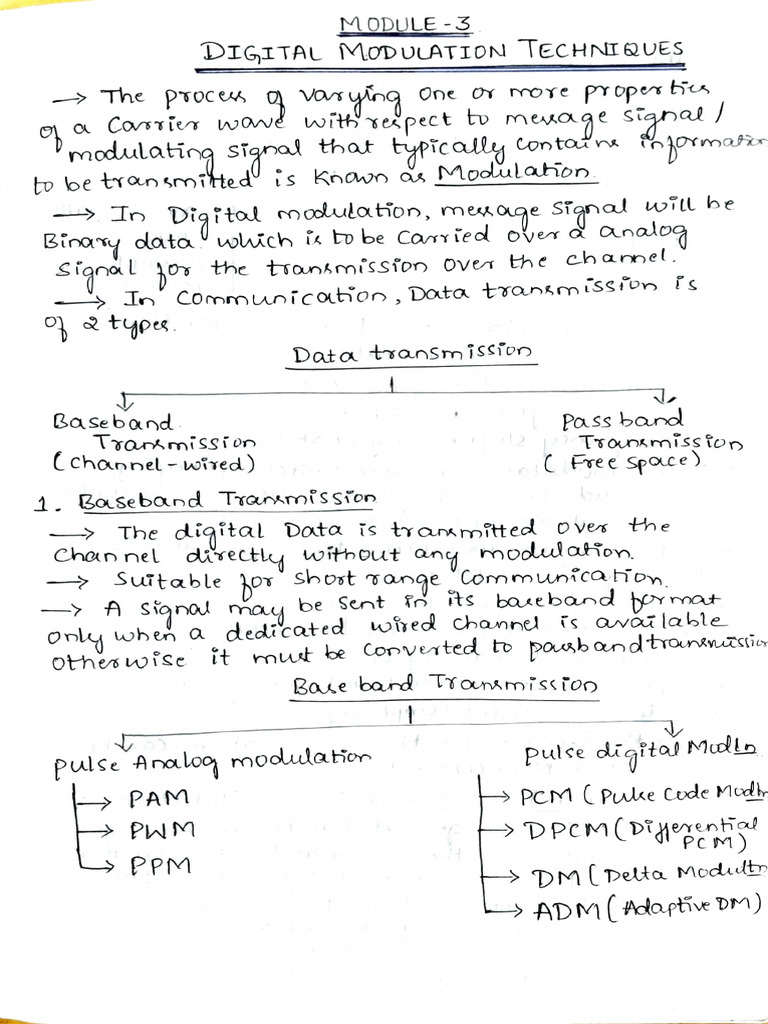 MODULE-3
DIGITAL MODULATION TECHNIQUES
→ The process of varying one or more properties
of a carrier wave with respect to message signal /
modulating signal that typically contains information
to be transmitted is known as Modulation.
→ In Digital modulation, message signal will be
Binary data which is to be carried over a analog
signal for the transmission over the channel.
→ In communication, Data transmission is
of 2 types.
Data transmission
Baseband Transmission (channel-wired)
Pass band Transmission (Free space)
1. Baseband Transmission
→ The digital Data is transmitted over the
channel directly without any modulation.
→ Suitable for short range communication.
→ A signal may be sent in its baseband format
only when a dedicated wired channel is available
otherwise it must be converted to passband transmission
Base band Transmission
pulse Analog modulation
→ PAM
→ PWM
→ PPM
pulse digital Modln
→ PCM (Pulse Code Modln
→ DPCM (Differential
PCM)
→ DM (Delta Modultn
→ ADM (Adaptive DM)